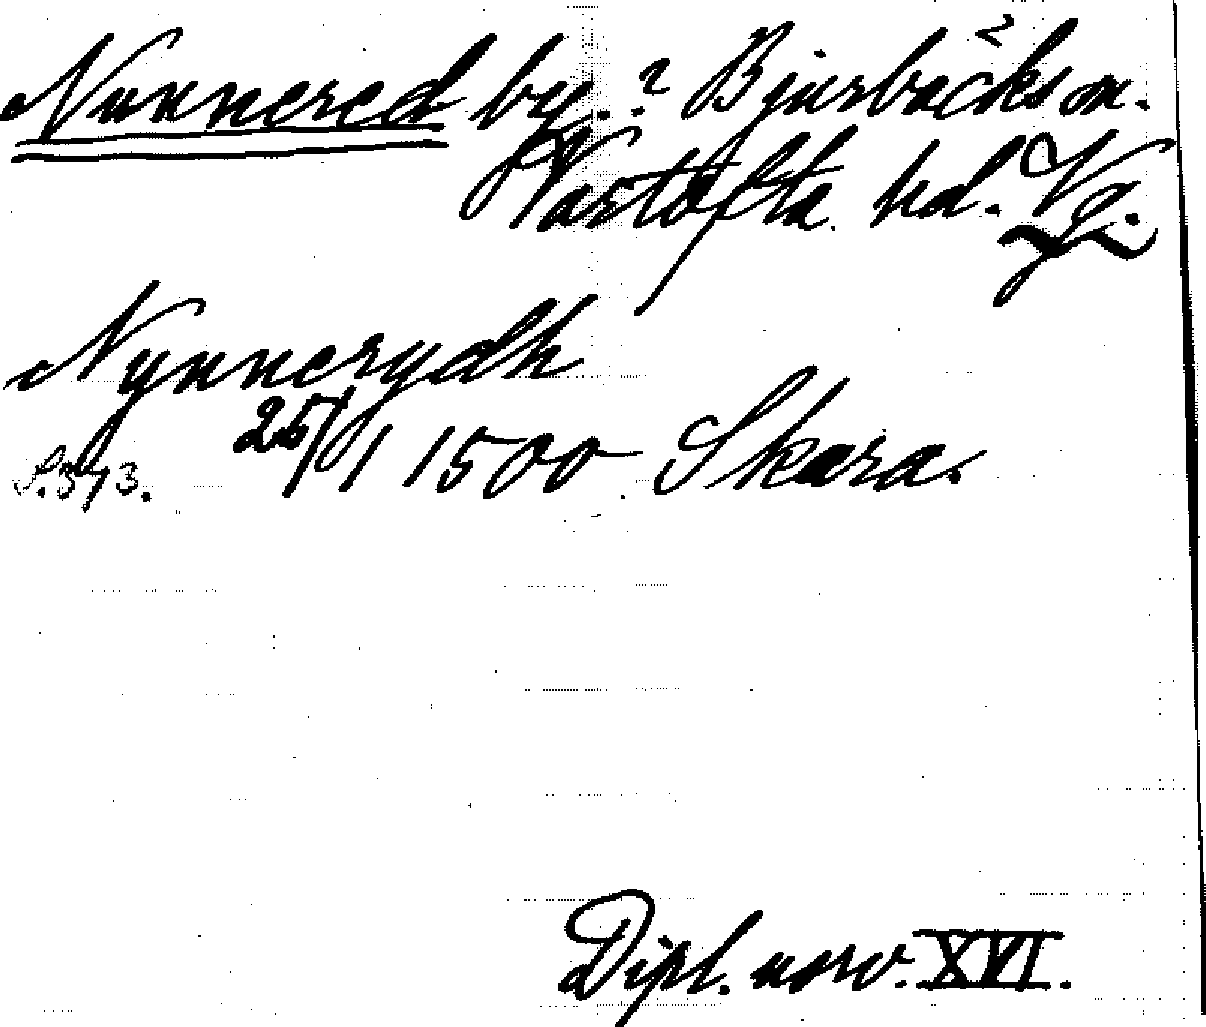 Nunnered by.? Bjurbäcks sn.
Vartofta hd. Vg.
Nynnerydh
25/1 1500 Skara.
S. 373.
Dipl. norv. XVI.